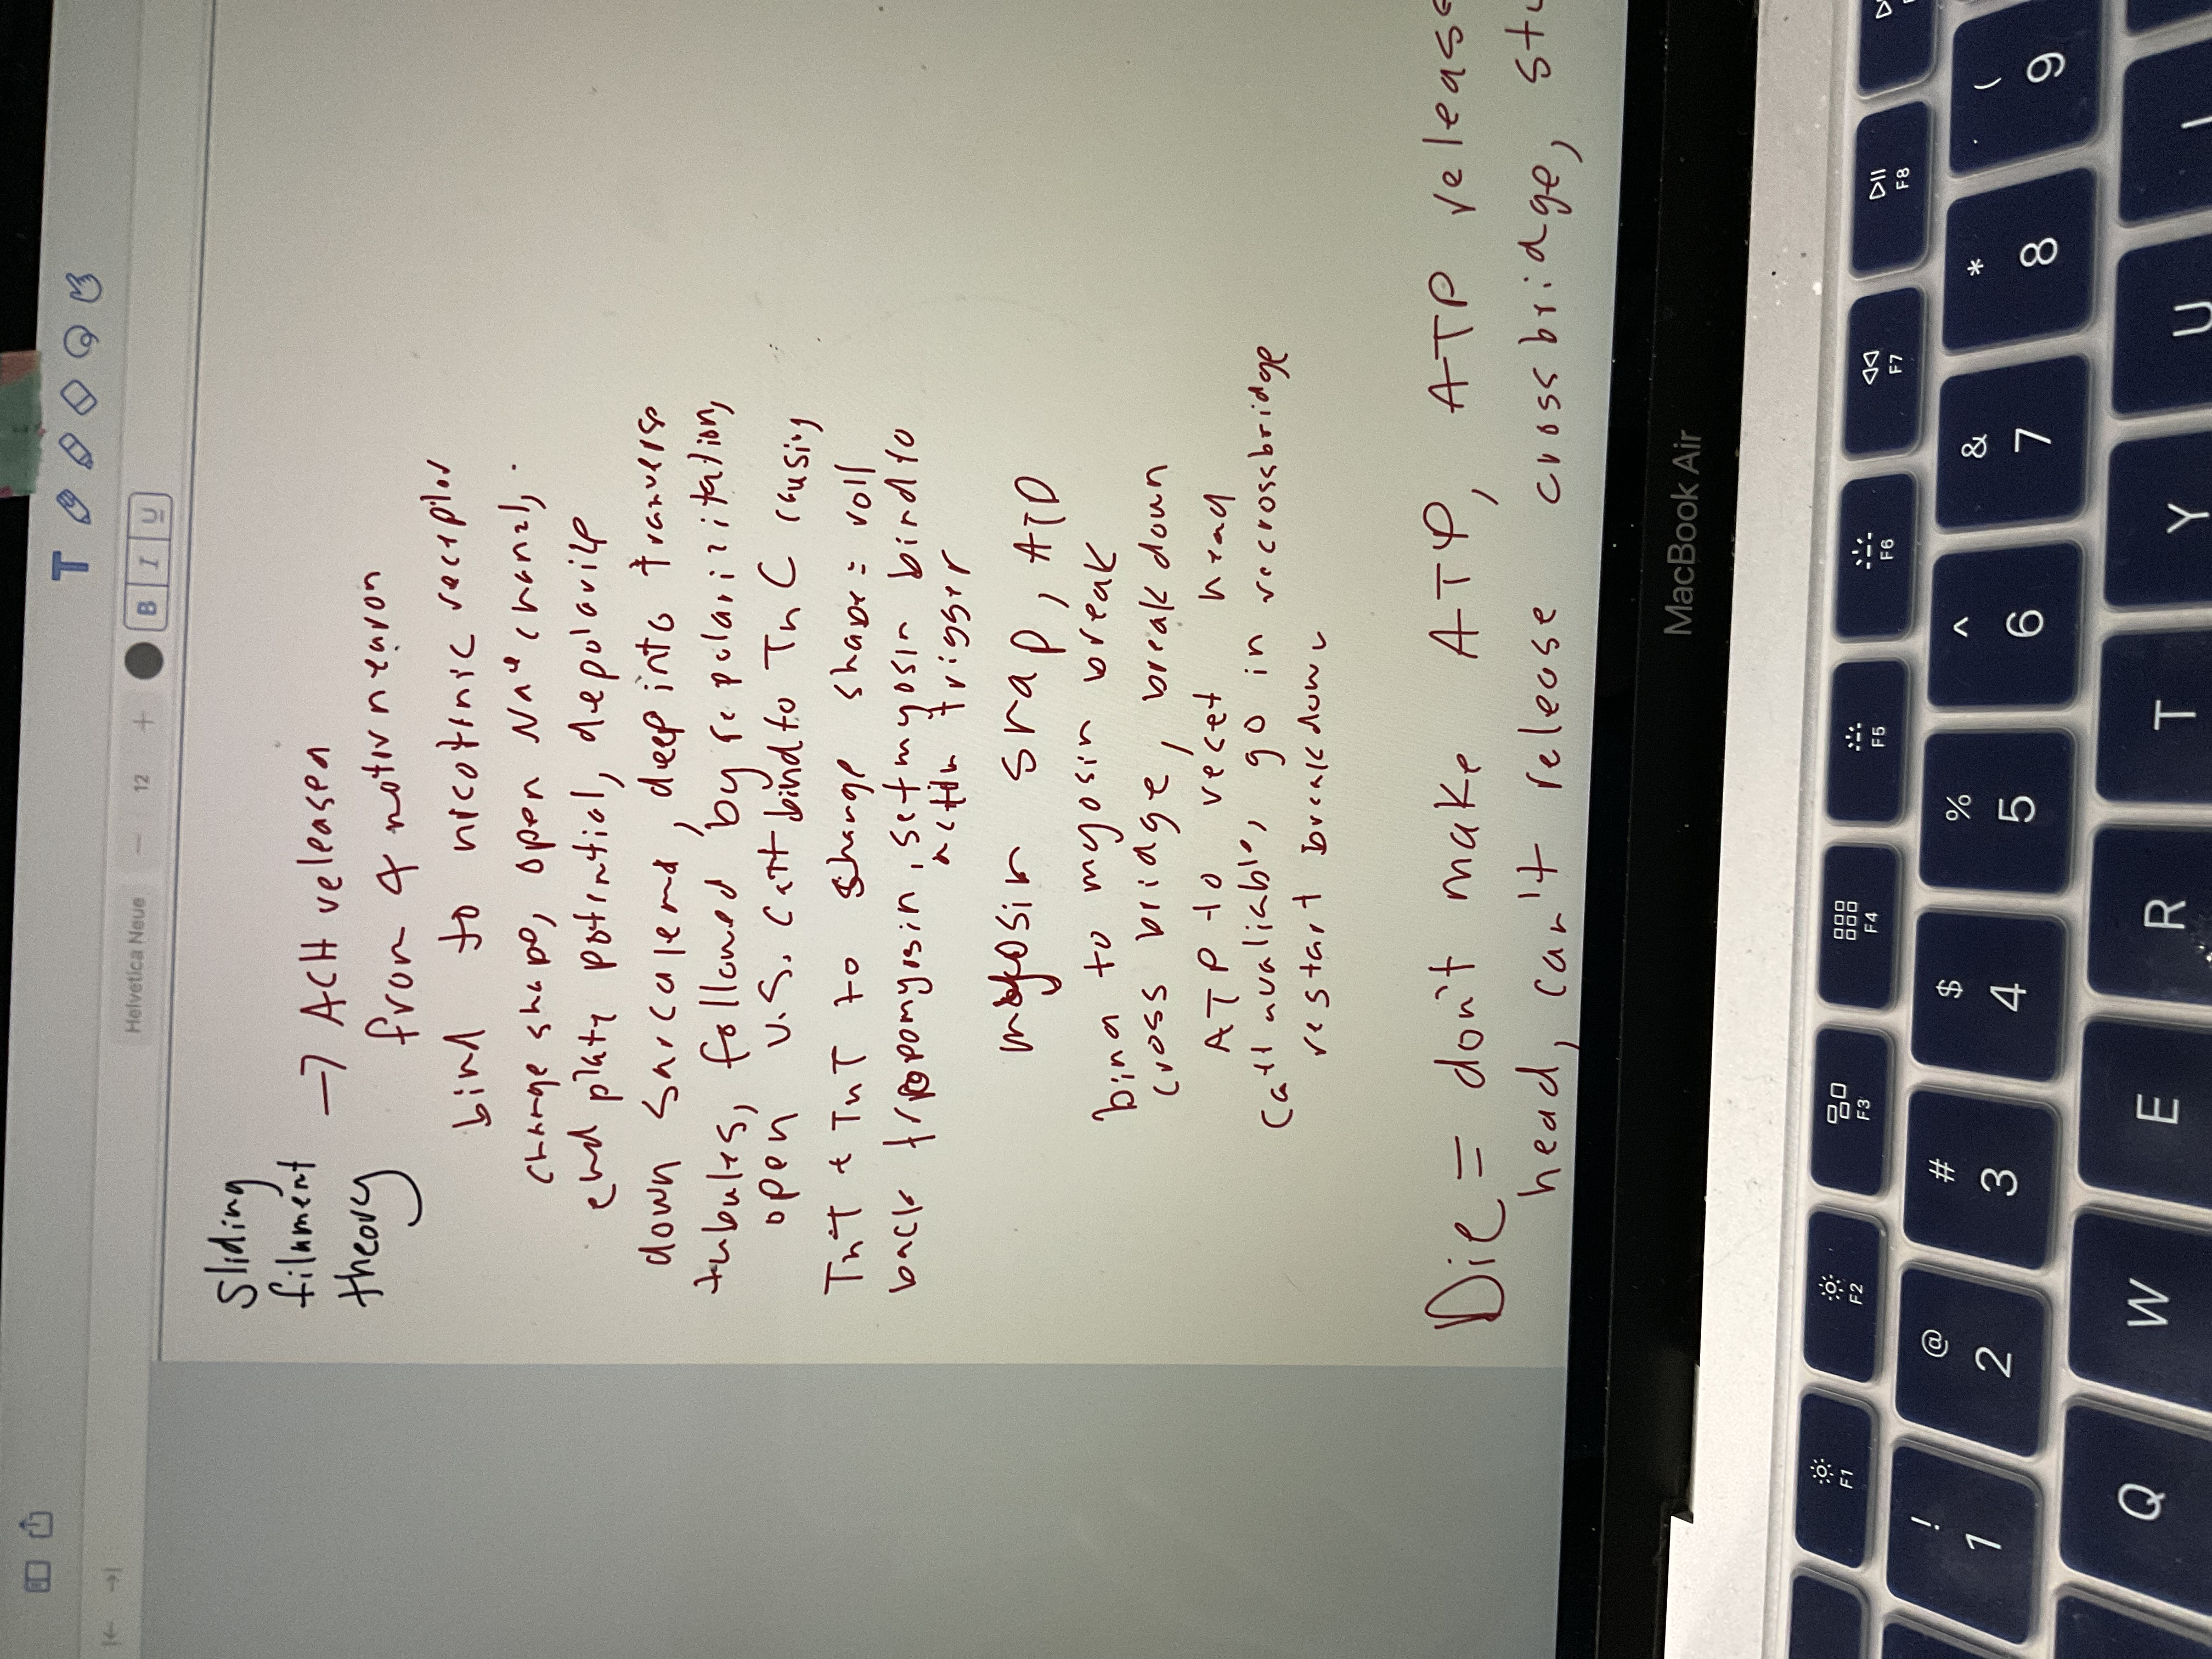 Helvetica Neue — 12 + B I U
sliding
filament
theory
→ ACH released
from α motor neuron
bind to nicotinic receptor
change shape, open Na+ chanel,
end plate potential, depolarize
down sarcolema, deep into tranverse
tubules, followed by repolarizitation,
open v.s. Ca++ bind to TnC causing
TnT + TnT to change shape = roll
back tropomyosin, set myosin bind to
actin trigger
myosin snap, ATP
bind to myosin break
cross bridge, break down
ATP to reset head
Ca++ avaliable, go in recrossbridge
restart breakdown
Die = don't make ATP, ATP release
head, can't release crossbridge, stu
MacBook Air
F1 F2 F3 F4 F5 F6 F7 F8
! @ # $ % ^ & * (
1 2 3 4 5 6 7 8 9
Q W E R T Y U I